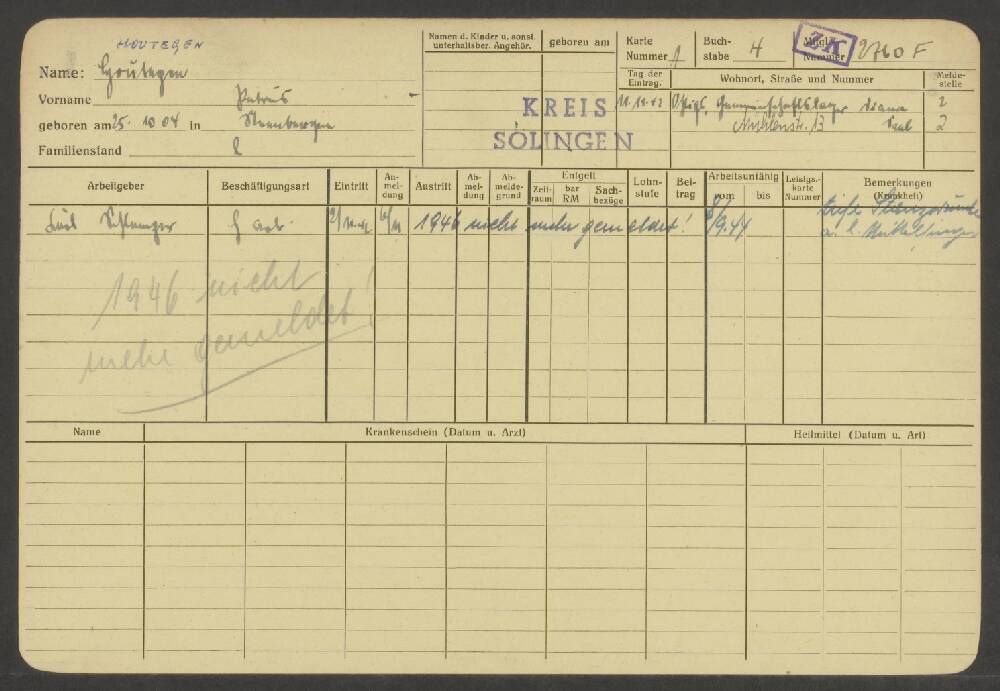 HOUTEGEN
Name: Houtegen
Vorname Petrus
geboren am 25. 10 04 in Steenbergen
Familienstand
Namen d. Kinder u. sonst. unterhaltsber. Angehör.
geboren am
KREIS
SOLINGEN
Karte Nummer 1
Buchstabe H
Mitgl. Nummer 2760 F
ZK
Tag der Eintrag.
Wohnort, Straße und Nummer
Meldestelle
11.11.42 Gemeinschaftslager Diana 2
Mühlenstr. 13 2
Arbeitgeber
Beschäftigungsart
Eintritt
Anmeldung
Austritt
Abmeldung
Abmeldegrund
Entgelt
Zeitraum
bar RM
Sachbezüge
Lohnstufe
Beitrag
Arbeitsunfähig
vom
bis
Leistgs.-karte Nummer
Bemerkungen
(Krankheit)
1946 nicht mehr gemeldet!
9.44
1946 nicht
mehr gemeldet!
Name
Krankenschein (Datum u. Arzt)
Heilmittel (Datum u. Art)